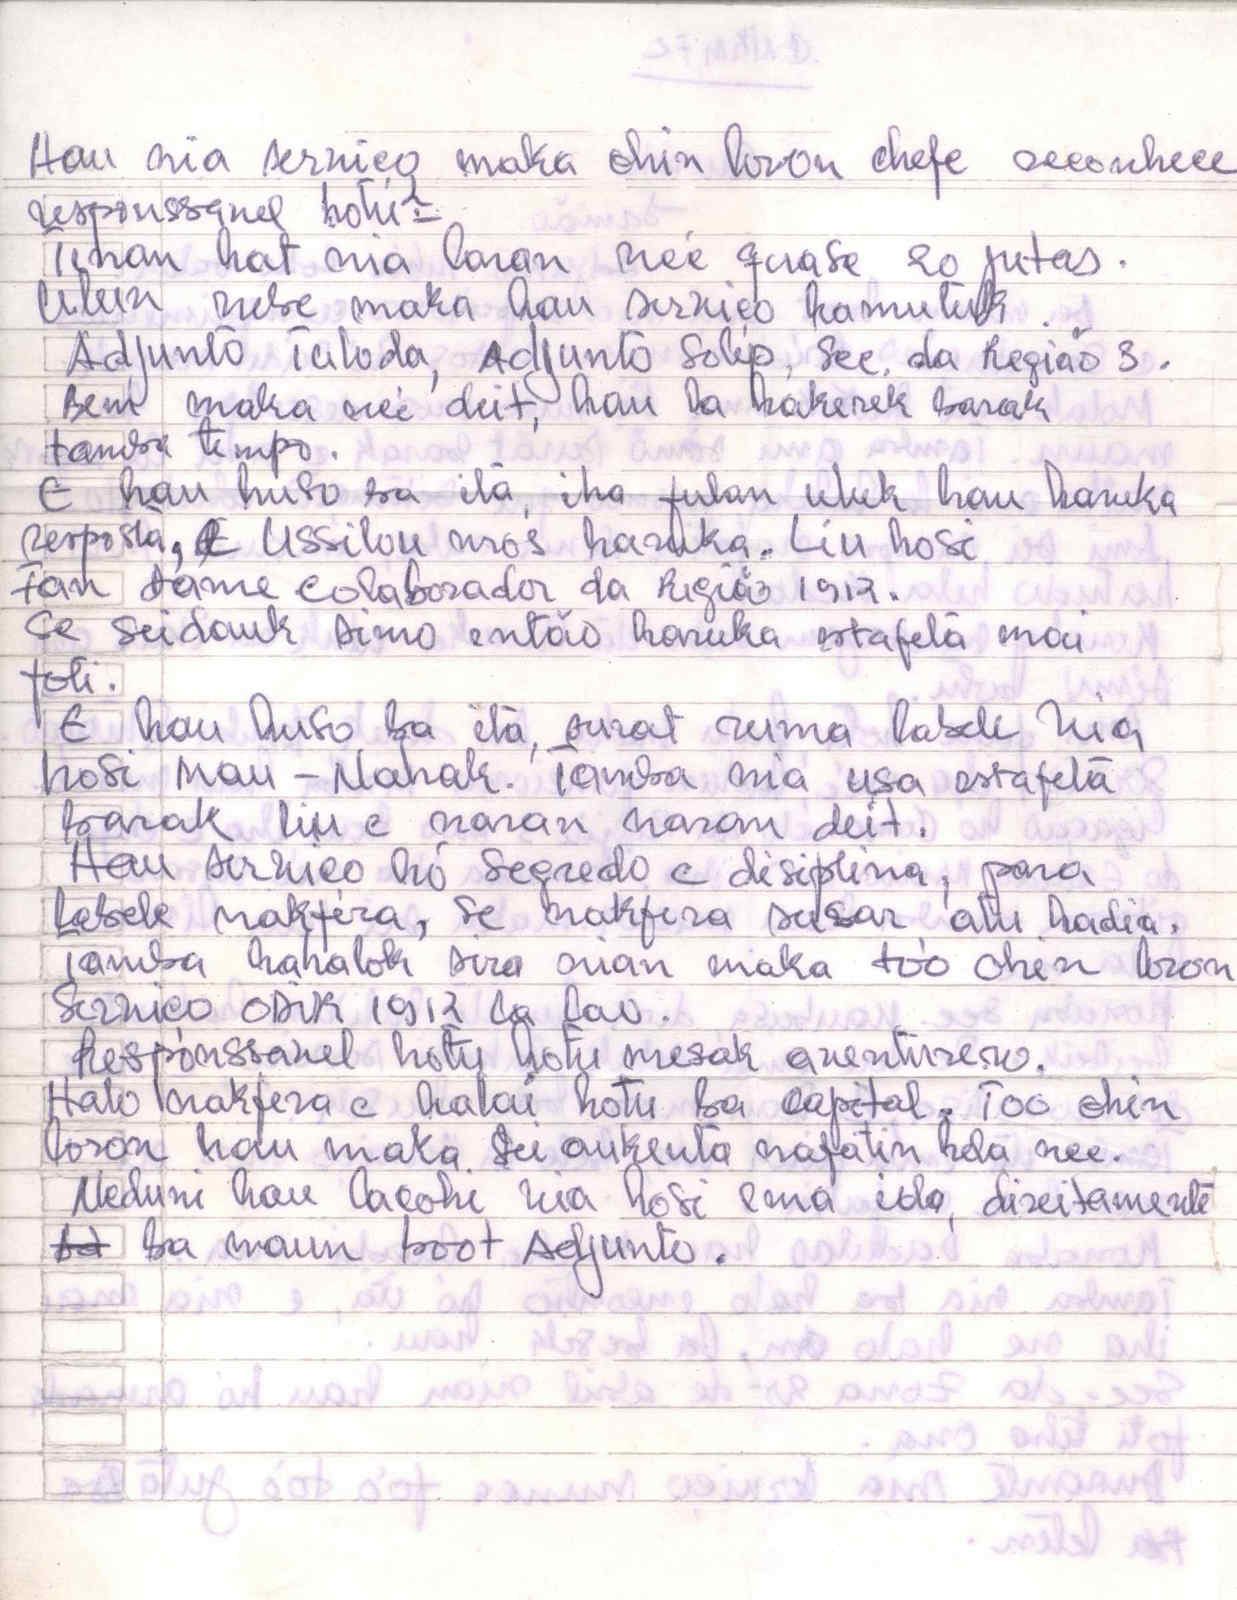 Hau nia serviço maka ohin loron chefe reconhece
responssavel hotu.
Tinan hat nia laran neé quase 20 jutas.
Uluk nebe maka hau serviço hamutuk
Adjunto Taloda, Adjunto Solip, Sec. da Região 3.
Bem maka neé deit, hau la hakerek barak
tamba tempo.
E hau huso ba ita, iha fulan uluk hau haruka
resposta, E Ussilou mos haruka. Liu hosi
Fan dame colaborador da Região 1912.
Se seidauk simo então haruka estafeta mai
foti.
E hau huso ba ita, surat ruma labele nia
hosi Mau-Nahak. Tamba nia usa estafeta
barak liu e naran naran deit.
Hau serviço hó segredo e disiplina, para
labele nakfera, se nakfera susar atu hadia.
Tamba hahalok sira nian maka too ohin loron
serviço ODIK 1912 la lao.
Responssavel hotu hotu mesak aventureiro.
Halo nakfera e halai hotu ba capital. Too ohin
loron hau maka sei aukenta nafatin hela nee.
Neduni hau lacohi nia hosi ema ida, direitamente
ba maun boot Adjunto.